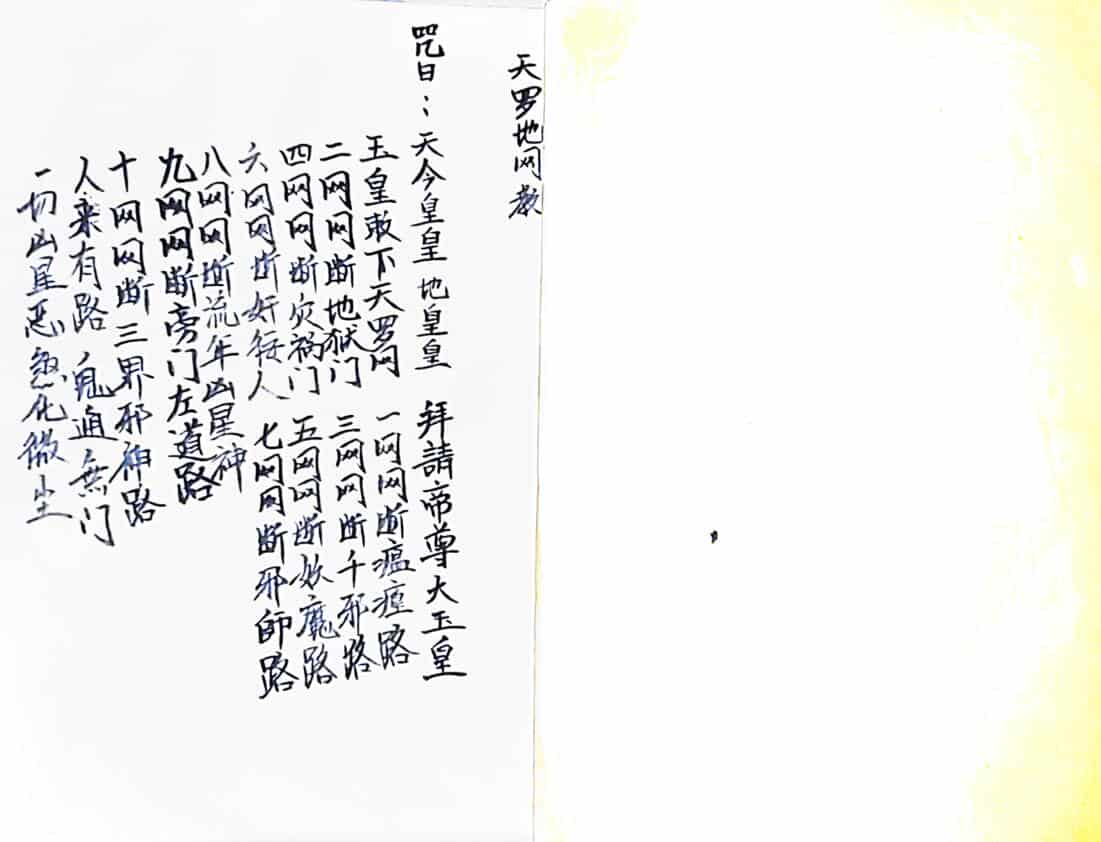 天罗地网教
咒曰：天今皇皇 地皇皇 拜請帝尊大玉皇
玉皇敢下天罗网 一网网断瘟瘟路
二网网断地狱门 三网网断千邪路
四网网断灾祸门 五网网断妖魔路
六网网断奸人 七网网断邪師路
八网网断流年凶星神
九网网断旁门左道路
十网网断三界邪神路
人来有路 鬼逥無门
一切凶星恶煞化微尘